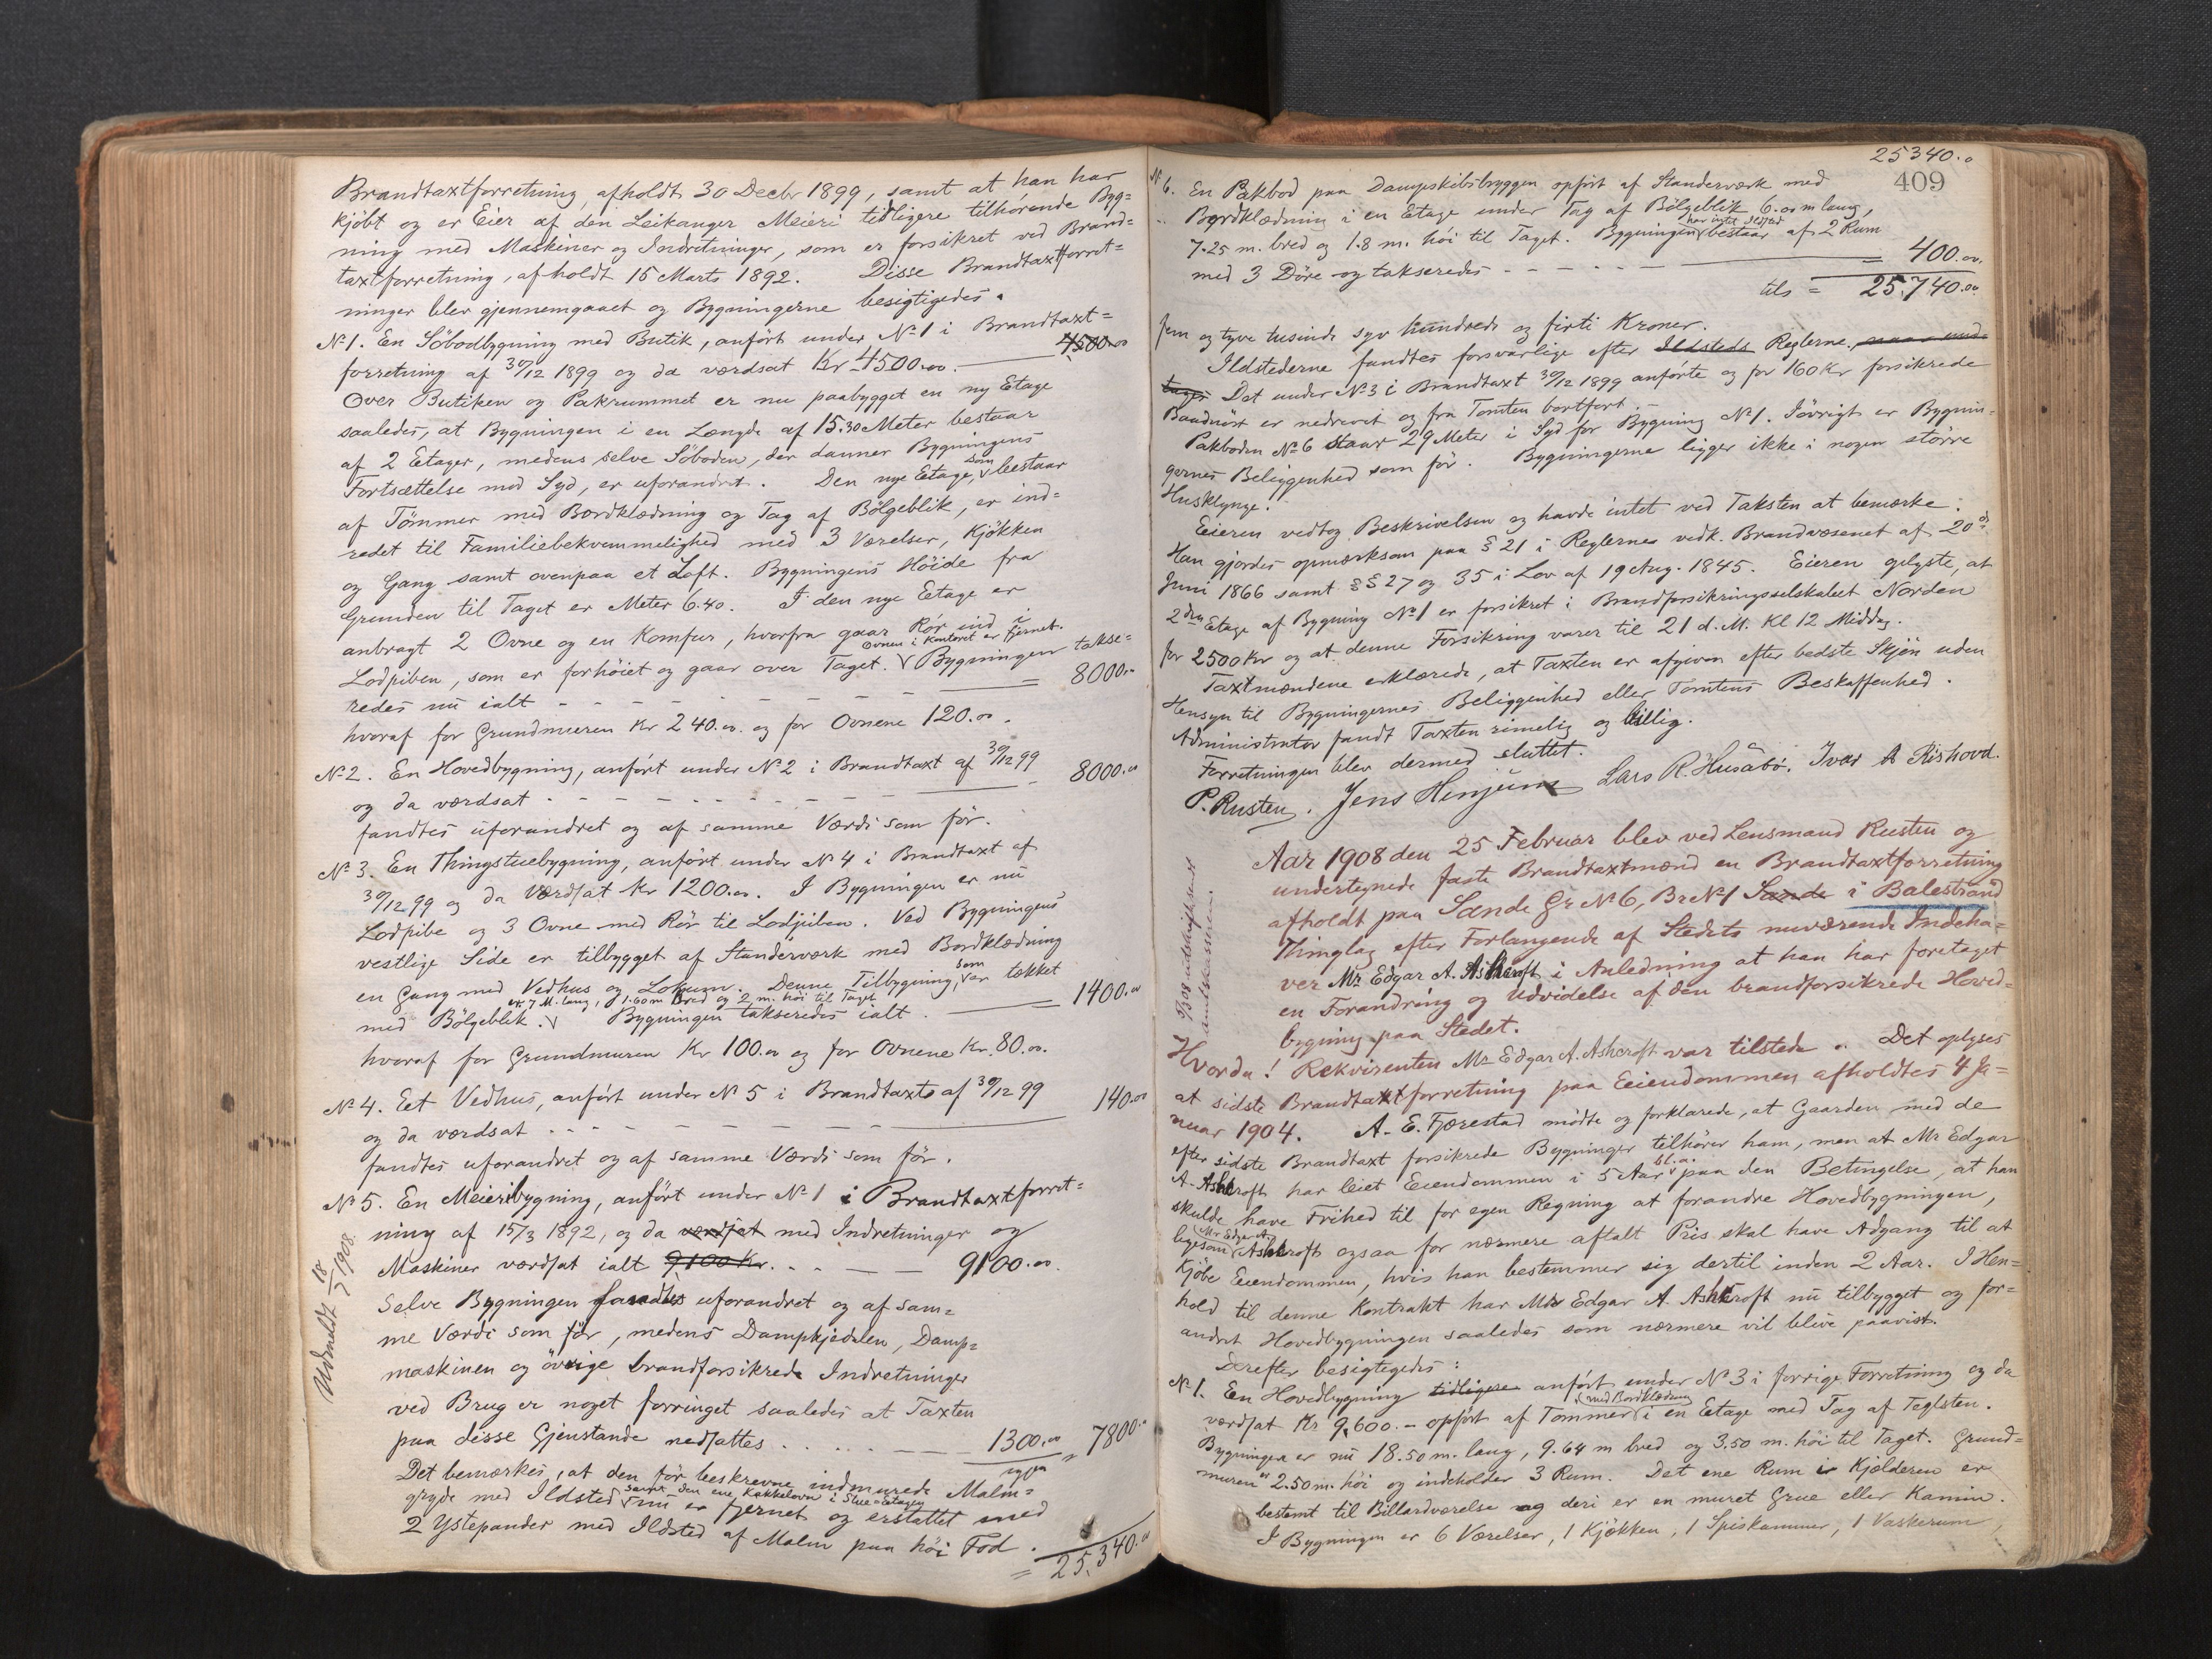 Brandtaxtforretning, afholdt 30 Decbr 1899, samt at han har
kjöbt og er Eier af den Leikanger Meieri tidligere tilhørende Byg=
ning med Maskiner og Indretninger, som er forsikret ved Brand=
taxtforretning, afholdt 15 Marts 1892. Disse Brandtaxtforret=
ninger blev gjennemgaaet og Bygningerne besigtigedes.
No 1. En Söbodbygning med Butik, anført under No 1 i Brandtaxt=
forretning af 30/12 1899 og da værdsat Kr 4500.00. 4500.00
Over Butiken og Pakrummet er nu paabygget en ny Etage
saaledes, at Bygningen i en Længde af 15.30 Meter bestaar
af 2 Etager, medens selve Söboden, der danner Bygningens
Fortsættelse mod Syd, er uforandret. Den nye Etage, som bestaar
af Tömmer med Bordklædning og Tag af Bölgeblik, er ind=
redet til Familiebekvemmelighed med 3 Værelser, Kjökken
og Gang samt ovenpaa et Loft. Bygningens Höide fra
Grunden til Taget er Meter 6.40. I den nye Etage er
anbragt 2 Ovne og en Komfur, hvorfra gaar Rör ind i
Lodpiben, som er forhöiet og gaar over Taget. Ovnen i Kontoret er fjernet. Bygningen takse=
redes nu ialt = 8000.00
hvoraf for Grundmuren Kr 240.00. og for Ovnene 120.00.
No 2. En Hovedbygning, anført under No 2 i Brandtaxt af 30/12 99
og da værdsat 8000.00
fandtes uforandret og af samme Værdi som för.
No 3. En Thingstuebygning, anført under No 4 i Brandtaxt af
30/12 99 og da værdsat Kr 1200.00. I Bygningen er nu
Lodpibe og 3 Ovne med Rör til Lodpiben. Ved Bygningens
vestlige Side er tilbygget af Standerværk med Bordklædning
en Gang med Vedhus og Lokum. Denne Tilbygning, som er tækket
med Bölgeblik. er 7 M. lang, 1.60 m bred og 2 m. höi til Taget Bygningen takseredes ialt. = 1400.00
hvoraf for Grundmuren Kr 100.00 og for Ovnene Kr. 80.00.
No 4. Eet Vedhus, anført under No 5 i Brandtaxt af 30/12 99
og da værdsat 140.00
fandtes uforandret og af samme Værdi som för.
No 5. En Meieribygning, anført under No 1 i Brandtaxtforret=
ning af 15/3 1892, og da værdsat med Indretninger og
Maskiner værdsat ialt 9100 Kr. 9100.00.
Selve Bygningen fandtes uforandret og af sam=
me Værdi som för, medens Dampkjedelen, Damp=
maskinen og övrige brandforsikrede Indretninger
ved Brug er noget forringet saaledes at Taxten
paa disse Gjenstande nedsattes 1300.00 = 7800.00
Det bemærkes, at den för beskrevne indmurede Malm=
gryde med Ildsted samt den ene Kakkelovn i Stue-Etagen nu er fjernet og erstattet med
2 Ystepander med Ildsted af Malm paa höi Fod.
= 25,340.00
Udmeldt 18/7 1908.
25340.0
409
No 6. En Pakbod paa Dampskibsbryggen opfört af Standerværk med
Bordklædning i en Etage under Tag af Bölgeblik 6.00 m lang,
7.25 m. bred og 1.8 m. höi til Taget. Bygningen har intet Ildsted bestaar af 2 Rum
med 3 Döre og takseredes = 400.00.
tils = 25.740.00
fem og tyve tusinde syv hundrede og firti Kroner.
Ildstederne fandtes forsvarlige efter Ildsteds Reglerne
Det under No 3 i Brandtaxt 30/12 1899 anførte og for 160 Kr forsikrede
Baadnöst er nedrevet og fra Tomten bortfört.
Pakboden No 6 staar 29 Meter i Syd for Bygning No 1. Iövrigt er Bygnin=
gernes Beliggenhed som för. Bygningerne ligger ikke i nogen större
Husklynge.
Eieren vedtog Beskrivelsen og havde intet ved Taksten at bemærke.
Han gjordes opmærksom paa § 21 i Reglernes vedk. Brandvæsenet af 20de
Juni 1866 samt §§ 27 og 35 i Lov af 19 Aug. 1845. Eieren oplyste, at
2den Etage af Bygning No 1 er forsikret i Brandforsikringsselskabet Norden
for 2500 Kr og at denne Forsikring varer til 21 d. M. Kl 12 Middag.
Taxtmændene erklærede, at Taxten er afgiven efter bedste Skjön uden
Hensyn til Bygningernes Beliggenhed eller Tomtens Beskaffenhed.
Administrator fandt Taxten rimelig og billig.
Forretningen blev dermed sluttet.
P. Rusten. Jens Henjum Lars R. Husabö. Ivar A Rishovd.
Aar 1908 den 25 Februar blev ved Lensmand Rusten og
undertegnede faste Brandtaxtmænd en Brandtaxtforretning
afholdt paa Sande Gr No 6, Br No 1 Sande i Balestrand
Thinglag efter Forlangende af Stedets nuværende Indeha=
ver Mr Edgar A. Ashcroft i Anledning at han har foretaget
en Forandring og Udvidelse af den brandforsikrede Hoved=
bygning paa Stedet.
Hvorda! Rekvirenten Mr Edgar A. Ashcroft var tilstede. Det oplyses
at sidste Brandtaxtforretning paa Eiendommen afholdtes 4 Ja=
nuar 1904. A. E. Fjærestad mödte og forklarede, at Gaarden med de
efter sidste Brandtaxt forsikrede Bygninger tilhörer ham, men at Mr Edgar
A. Ashcroft har leiet Eiendommen i 5 Aar bl. a. paa den Betingelse, at han
skulde have Frihed til for egen Regning at forandre Hovedbygningen,
ligesom Mr Edgar A. Ashcroft ogsaa for nærmere aftalt Pris skal have Adgang til at
kjöbe Eiendommen, hvis han bestemmer sig dertil inden 2 Aar. I Hen=
hold til denne Kontrakt har Mr Edgar A. Ashcroft nu tilbygget og for=
andret Hovedbygningen saaledes som nærmere vil blive paavist.
Derefter besigtegedes:
No 1. En Hovedbygning tidligere anfört under No 3 i forrige Forretning og da
værdsat Kr 9,600.- opfört af Tömmer med Bordklædning i en Etage med Tag af Teglsten.
Bygningen er nu 18.50 m. lang, 9.64 m bred og 3.50 m. höi til Taget. Grund=
muren er 2.50 m. höi og indeholder 3 Rum. Det ene Rum i Kjælderen er
bestemt til Billardværelse og deri er en muret Grue eller Kamin.
I Bygningen er 6 Værelser, 1 Kjökken, 1 Spiskammer, 1 Vaskerum,